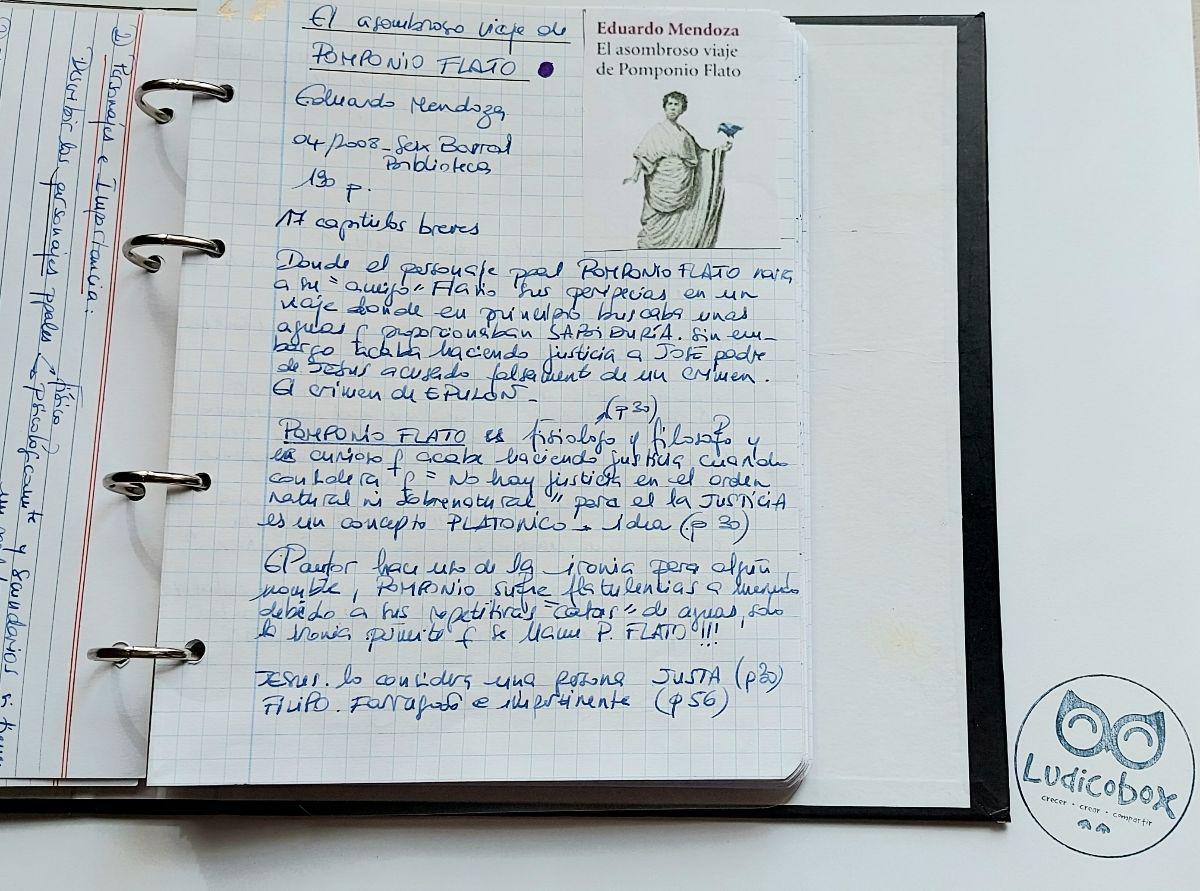 El asombroso viaje de
POMPONIO FLATO
Eduardo Mendoza
04/2008 - Seix Barral
Biblioteca
190 p.
17 capitulos breves
Eduardo Mendoza
El asombroso viaje
de Pomponio Flato
Donde el personaje ppal POMPONIO FLATO narra
a su "amigo" Flavio sus peripecias en un
viaje donde en principio buscaba unas
aguas q proporcionaban SABIDURÍA. Sin em-
bargo acaba haciendo justicia a JOSÉ padre
de JESUS acusado falsament de un crimen.
El crimen de EPULÓN -
(p 30)
POMPONIO FLATO es fisiologo y filosofo y
es curioso q acabe haciendo justicia cuando
considera q "No hay justicia en el orden
natural ni sobrenatural" para el la JUSTÍCIA
es un concepto PLATONICO - idea (p 30)
El autor hace uso de la ironia para algún
nombre, POMPONIO sufre flatulencias a menudo
debido a sus repetitivas "catas" de aguas, solo
la ironia permite q se llame P. FLATO !!!
JESUS. lo considera una persona JUSTA (p 30)
FILIPO. Farragoso e impertinente (p 56)
2) Personajes e Importancia:
Describir los personajes ppales
físico
psicológicamente y secundarios si
Ludicobox
crecer · crear · compartir